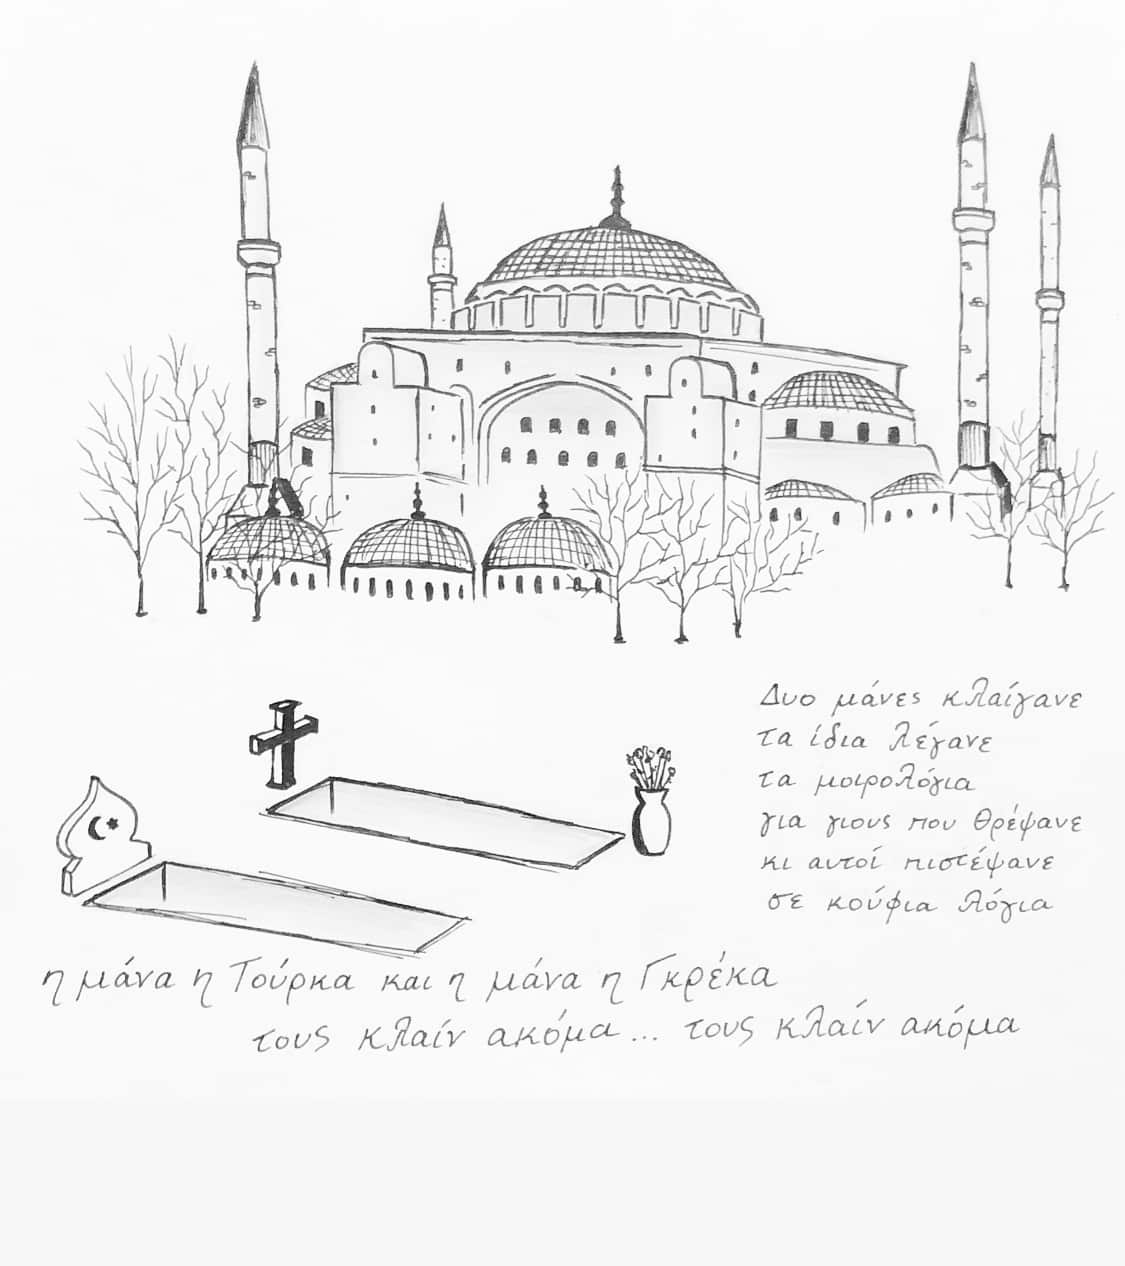 Δυο μάνες κλαίγανε
τα ίδια λέγανε
τα μοιρολόγια
για γιους που θρέψανε
κι αυτοί πιστέψανε
σε κούφια λόγια
η μάνα η Τούρκα και η μάνα η Γκρέκα
τους κλαίν ακόμα... τους κλαίν ακόμα